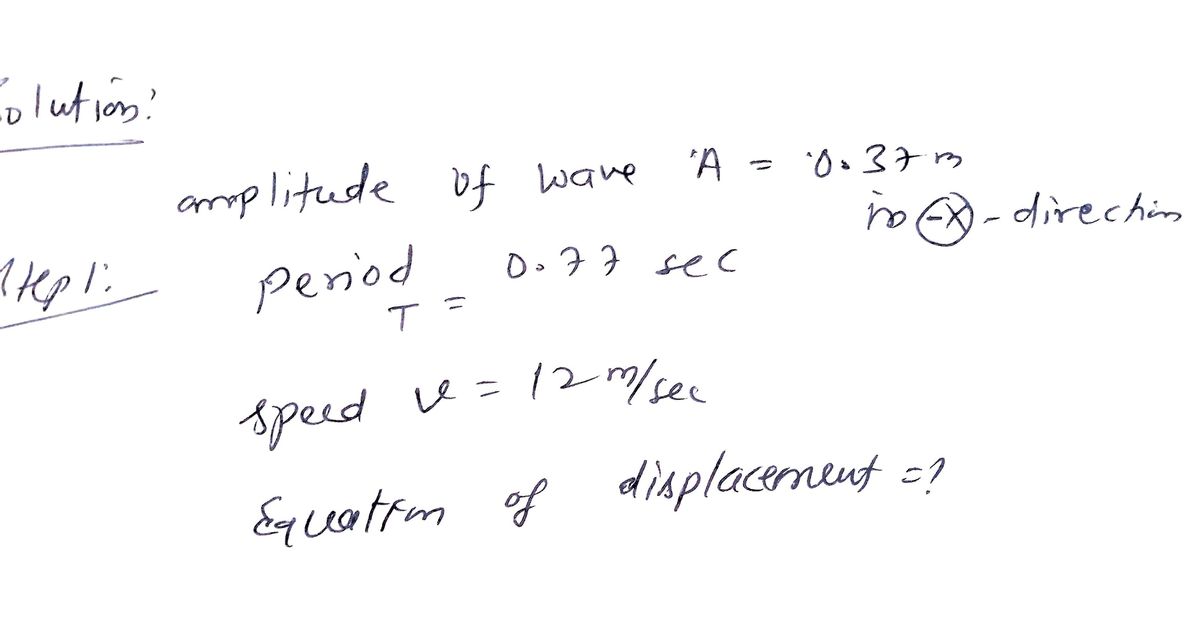 Solution:
amplitude of wave A = 0.37 m
in -X - direction
Step 1:
period T = 0.77 sec
speed v = 12 m/sec
Equation of displacement = ?